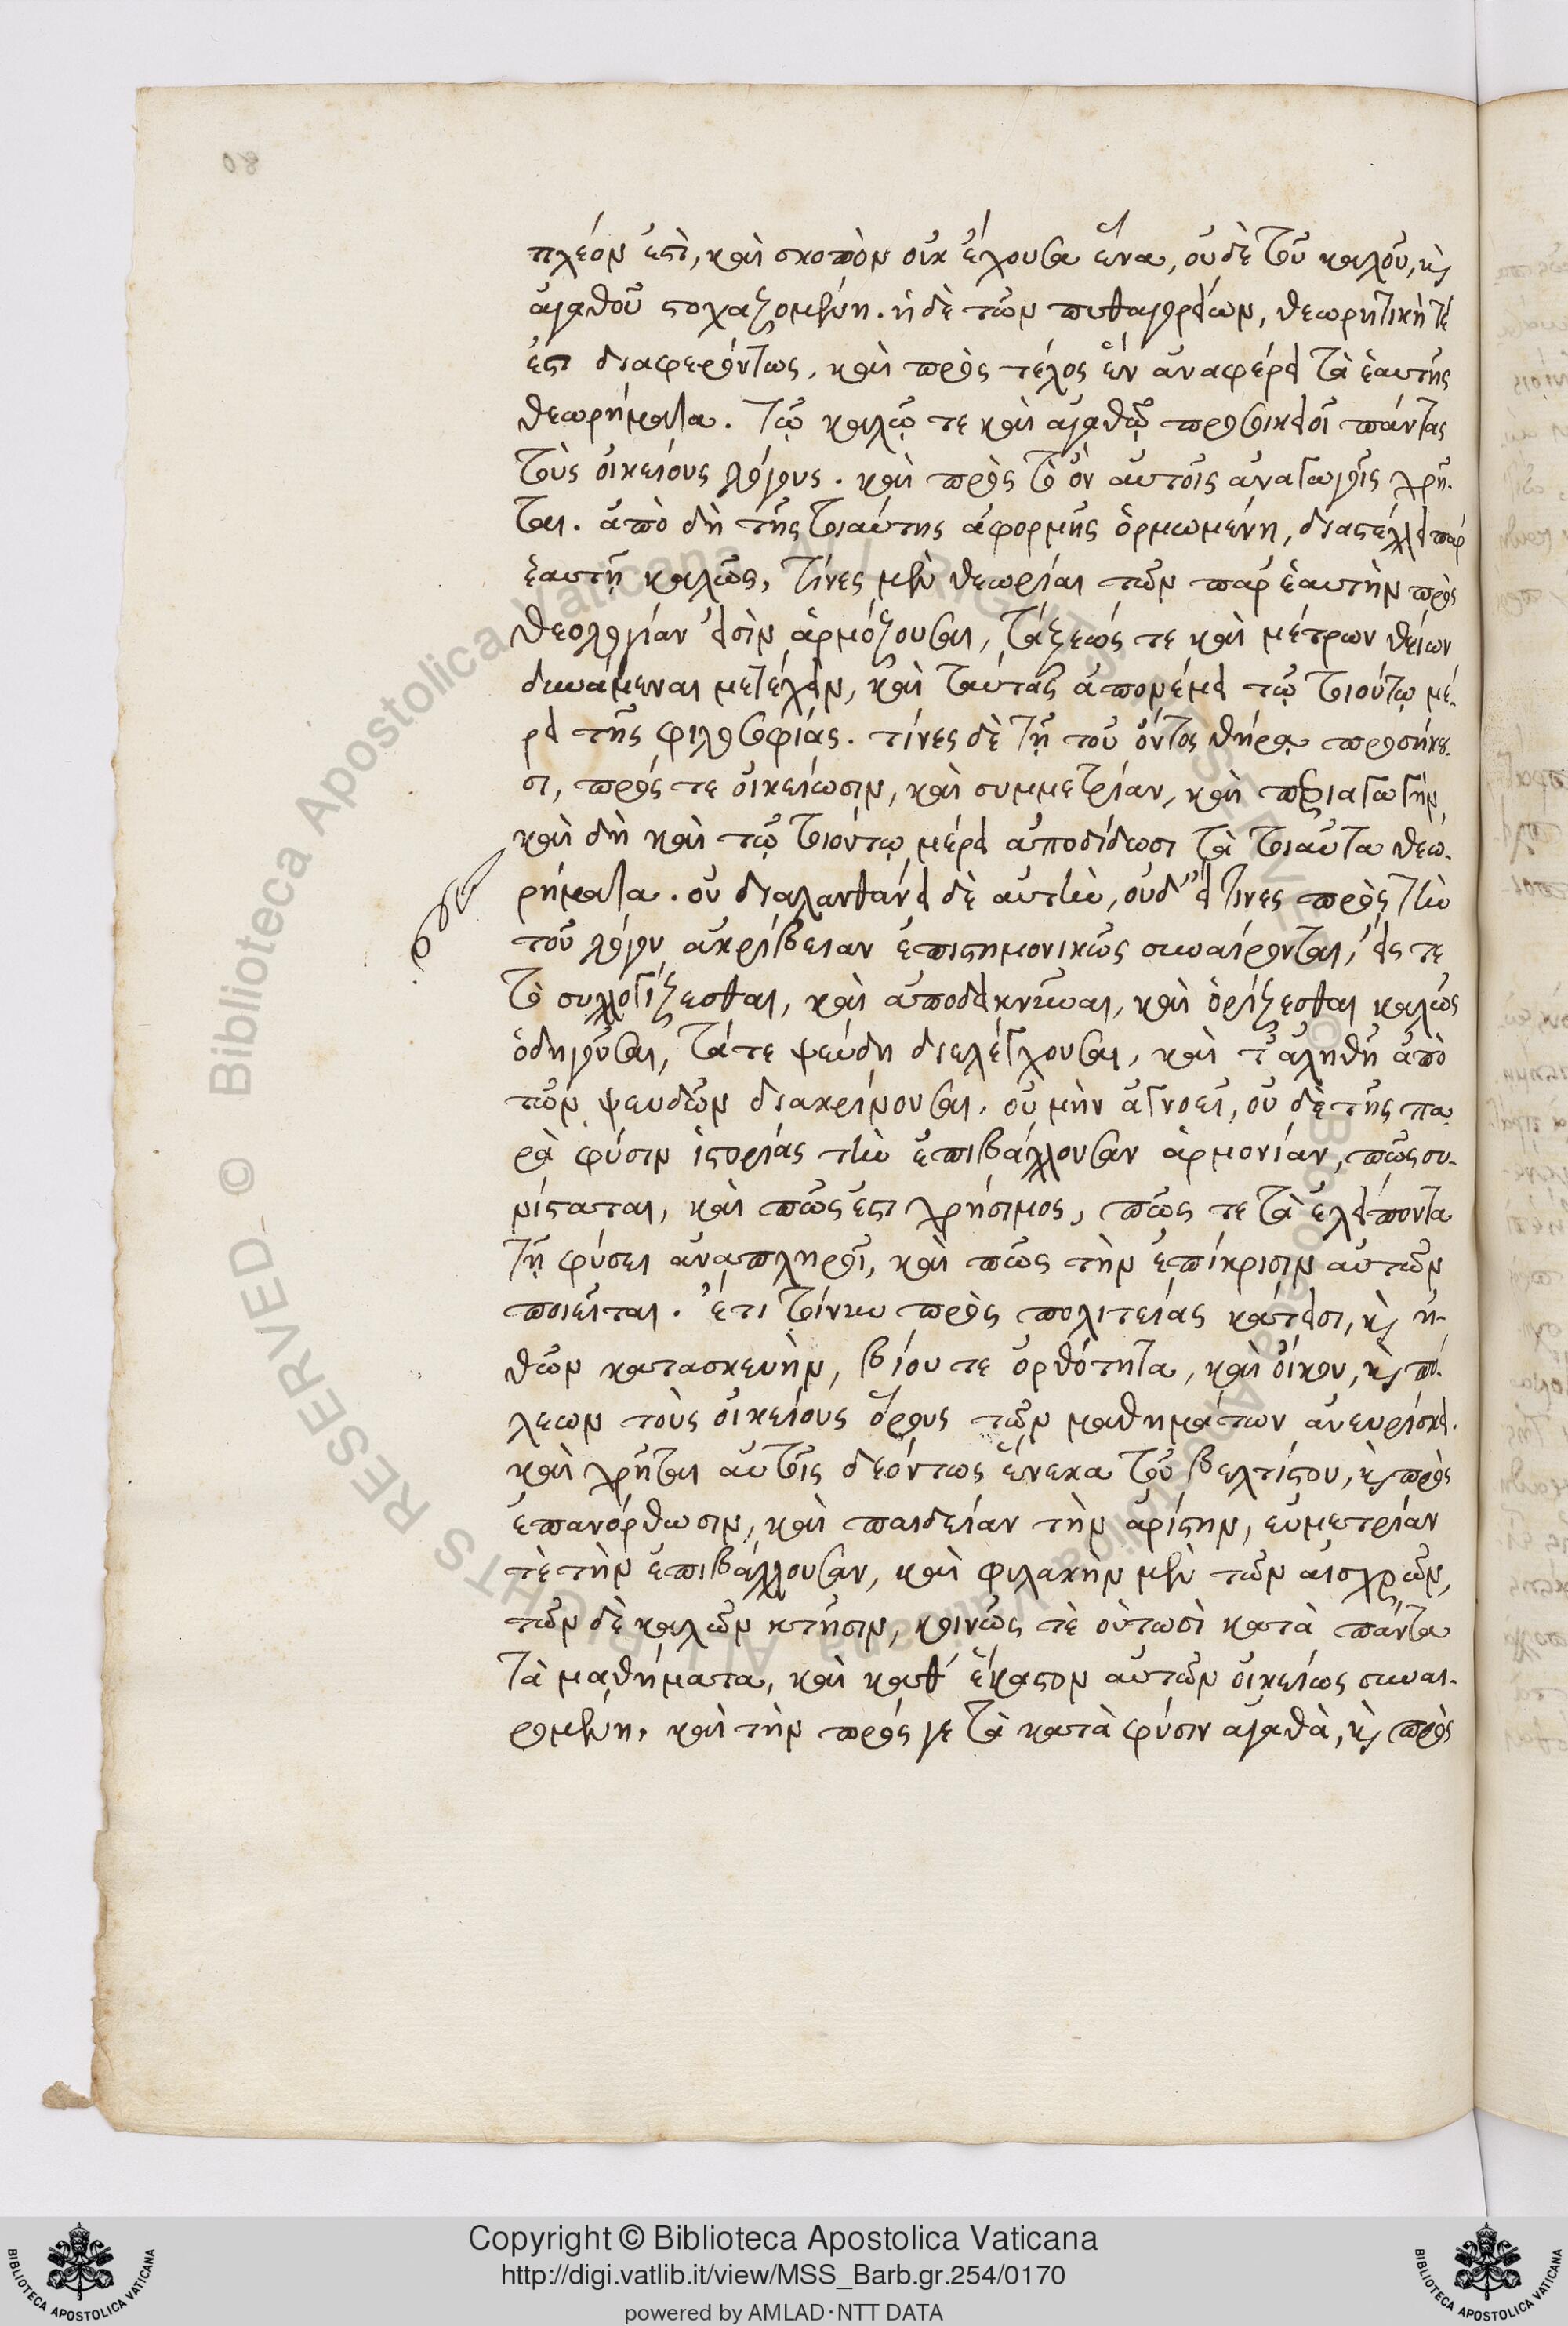 πλέον ἐστὶ, καὶ σκοπὸν οὐκ ἔχουσα ἕνα, οὐδὲ τοῦ καλοῦ, κ̀
ἀγαθοῦ στοχαζομένη. ἡ δὲ τῶν πυθαγορείων, θεωρητικὴ τέ
ἐστι διαφερόντως, καὶ πρὸς τέλος ἓν ἀναφέρει τὰ ἑαυτῆς
θεωρήματα. τῷ καλῷ τε καὶ ἀγαθῷ προσοικειοῖ πάντας
τοὺς οἰκείους λόγους. καὶ πρὸς τὸ ὂν αὐτοῖς ἀναγωγοῖς χρῆ-
ται. ἀπὸ δὴ τῆς τοιαύτης ἀφορμῆς ὁρμωμένη, διαστέλλει παρ'
ἑαυτῇ καλῶς, τίνες μὲν θεωρίαι τῶν παρ' ἑαυτὴν πρὸς
θεολογίαν εἰσὶν ἁρμόζουσαι, τάξεώς τε καὶ μέτρων θείων
δυνάμεναι μετέχειν, καὶ ταύτας ἀπονέμει τῷ τοιούτῳ μέ-
ρει τῆς φιλοσοφίας. τίνες δὲ τῇ τοῦ ὄντος θήρᾳ προσήκου-
σι, πρός τε οἰκείωσιν, καὶ συμμετρίαν, καὶ περιαγωγὴν,
καὶ δὴ καὶ τῷ τοιούτῳ μέρει ἀποδίδωσι τὰ τοιαῦτα θεω-
ρήματα. οὐ διαλανθάνει δὲ αὐτὴν, οὐδ' εἴ τινες πρὸς τὴν
τοῦ λόγου ἀκρίβειαν ἐπιστημονικῶς συναίρονται, εἴς τε
τὸ συλλογίζεσθαι, καὶ ἀποδεικνύναι, καὶ ὁρίζεσθαι καλῶς
ὁδηγοῦσαι, τά τε ψεύδη διελέγχουσαι, καὶ τἀληθῆ ἀπὸ
τῶν ψευδῶν διακρίνουσαι. οὐ μὴν ἀγνοεῖ, οὐδὲ τῆς πα
ρὰ φύσιν ἱστορίας τὴν ἐπιβάλλουσαν ἁρμονίαν, πῶς συ-
νίσταται, καὶ πῶς ἐστι χρήσιμος, πῶς τε τὰ ἐλείποντα
τῇ φύσει ἀναπληροῖ, καὶ πῶς τὴν ἐπίκρισιν αὐτῶν
ποιεῖται. ἔτι τοίνυν πρὸς πολιτείας κάτεισι, κ̀ ἠ-
θῶν κατασκευὴν, βίου τε ὀρθότητα, καὶ οἴκου, κ̀ πό-
λεων τοὺς οἰκείους ὅρους τῶν μαθημάτων ἀνευρίσκει.
καὶ χρῆται αὐτοῖς δεόντως ἕνεκα τοῦ βελτίστου, κ̀ πρὸς
ἐπανόρθωσιν, καὶ παιδείαν τὴν ἀρίστην, εὐμετρίαν
τὲ τὴν ἐπιβάλλουσαν, καὶ φιλακὴν μὲν τῶν αἰσχρῶν,
τῶν δὲ καλῶν κτῆσιν, κοινῶς τὲ οὑτωσὶ κατὰ πάντα
τὰ μαθήματα, καὶ καθ' ἕκαστον αὐτῶν οἰκείως συναι-
ρομένη, καὶ τὴν πρός γε τὰ κατὰ φύσιν ἀγαθὰ, κ̀ πρὸς
80
Copyright © Biblioteca Apostolica Vaticana
http://digi.vatlib.it/view/MSS_Barb.gr.254/0170
powered by AMLAD·NTT DATA
BIBLIOTECA APOSTOLICA VATICANA
BIBLIOTECA APOSTOLICA VATICANA